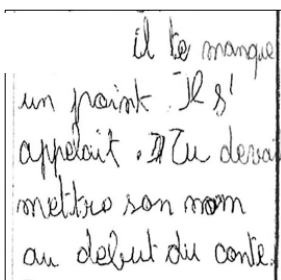 il te manque
un point. Il s'
appelait. Tu devai
mettre son nom
au debut du conte.